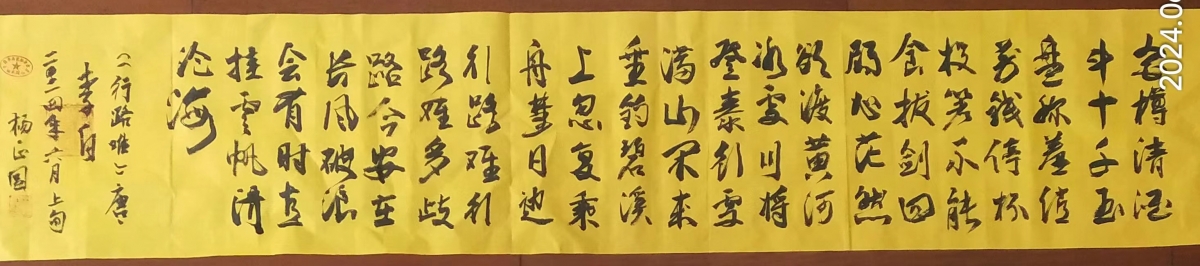 金樽清酒
斗十千玉
盘珍羞值
万钱停杯
投箸不能
食拔剑四
顾心茫然
欲渡黄河
冰雪川将
登泰行雪
满山闲来
垂钓碧溪
上忽复乘
舟梦日边
行路难行
路难多歧
路今安在
长风破浪
会有时直
挂云帆济
沧海
《行路难》唐
李白
二〇二四年六月上旬
杨正国
2024.0